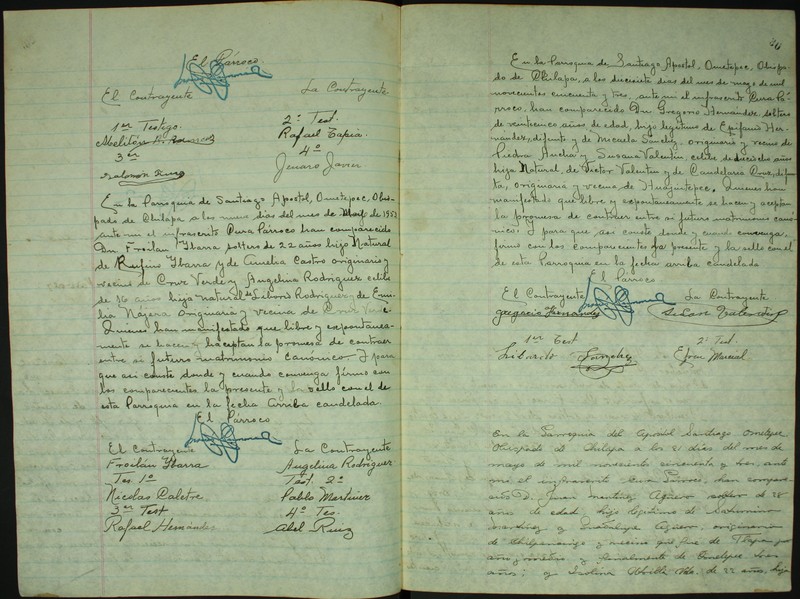 El Párroco.
El Contrayente La Contrayente
1er Testigo. 2º Test.
Rafael Tapia.
3er 4º
Salomón Ruiz Jenaro Javier
En la Parroquia de Santiago Apostol, Ometepec, Obis-
pado de Chilapa a los nueve días del mes de de 195
ante mi el infrascrito Cura Párroco han comparecido
Dn Froilan Ybarra soltero de 22 años hijo Natural
de Rufino Ybarra y de Amelia Castro originario y
vecino de Cruz Verde y Angelina Rodriguez celibe
de 16 años hija natural de Liborio Rodriguez y de Emi-
lia Najara originaria y vecina de Cruz Verde.
Quienes han manifestado que libre y expontanea-
mente se hacen y haceptan la promesa de contraer
entre si futuro matrimonio Canónico. Y para
que asi conste donde y cuando convenga firmo con
los comparecientes la presente y la sello con el de
esta Parroquia en la fecha Arriba candelada.
El Párroco
El Contrayente La Contrayente
Froilán Ybarra Angelina Rodriguez
Tes. 1º Test. 2º
Nicolas Calctre Pablo Martinez
3er Test 4º Tes.
Rafael Hernández Abel Ruiz
20
En la Parroquia de Santiago Apostol, Ometepec, Obispa-
do de Chilapa, a los diecisiete dias del mes de mayo de mil
novecientos cincuenta y tres, ante mi el infrascrito Cura Pá-
rroco, han comparecido Dn Gregorio Hernández, soltero
de veintcinco años de edad, hijo legitimo de Epifanio Her-
nández, difunto y de Micaela Sánchez, originario y vecino de
Piedra Ancha y Susana Valentin, celibe, de dieciocho años
hija Natural, de Victor Valentin y de Candelaria Cruz, difun-
ta, originaria y vecina de Huajintepec. Quienes han
manifestado que libre y expontaneamente se hacen y aceptan
la promesa de contraer entre si futuro matrimonio canó-
nico. Y para que asi conste donde y cuando convenga,
firmo con los comparecientes la presente y la sello con el
de esta Parroquia en la fecha arriba candelada
El Párroco
El Contrayente La Contrayente
Gregorio Hernández
1er Test 2º Test.
Librado Sanchez Efren Marcial
En la Parroquia del Apostol Santiago Ometepec
Obispado de Chilapa a los 21 dias del mes de
mayo de mil novecientos cincuenta y tres, ante
mi el infrascrito Cura Párroco, han compare-
cido D. Juan Martinez Agüero soltero de 28
años de edad, hijo legitimo de Saturnino
Martinez y Agüero, originario
de Chilpancingo y vecino que fue de Tlapa
y actualmente de Ometepec tres
años; y Isolina de 22 años, hija